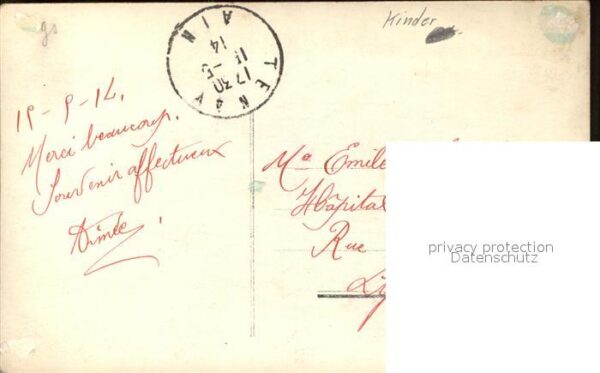 gs
Kinder
TENAY
17 30
15 -5
14
AIN
15-5-14.
Merci beaucoup.
Souvenir affectueux
Aimée
Ma Emile
Hôpital
Rue
privacy protection
Datenschutz